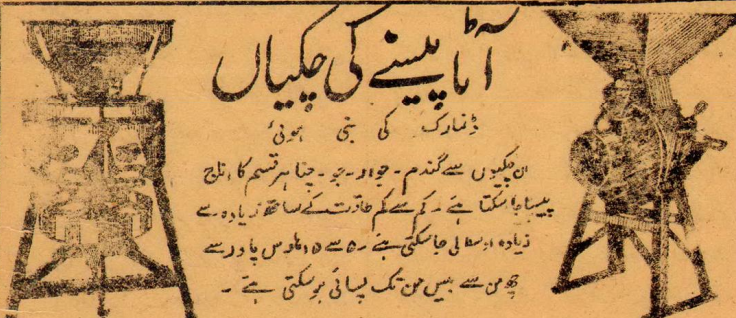 آٹا پیسنے کی چکیاں
ڈنمارک کی بنی ہوئی
ان چکیوں سے گندم - جوار - جو - چنا ہر قسم کا اناج
پیسا جا سکتا ہے - کم سے کم طاقت کے ساتھ زیادہ سے
زیادہ اوسط لی جا سکتی ہے - ۵ سے ۱۵ ہارس پاور سے
چھ من سے بیس من تک پسائی ہو سکتی ہے -